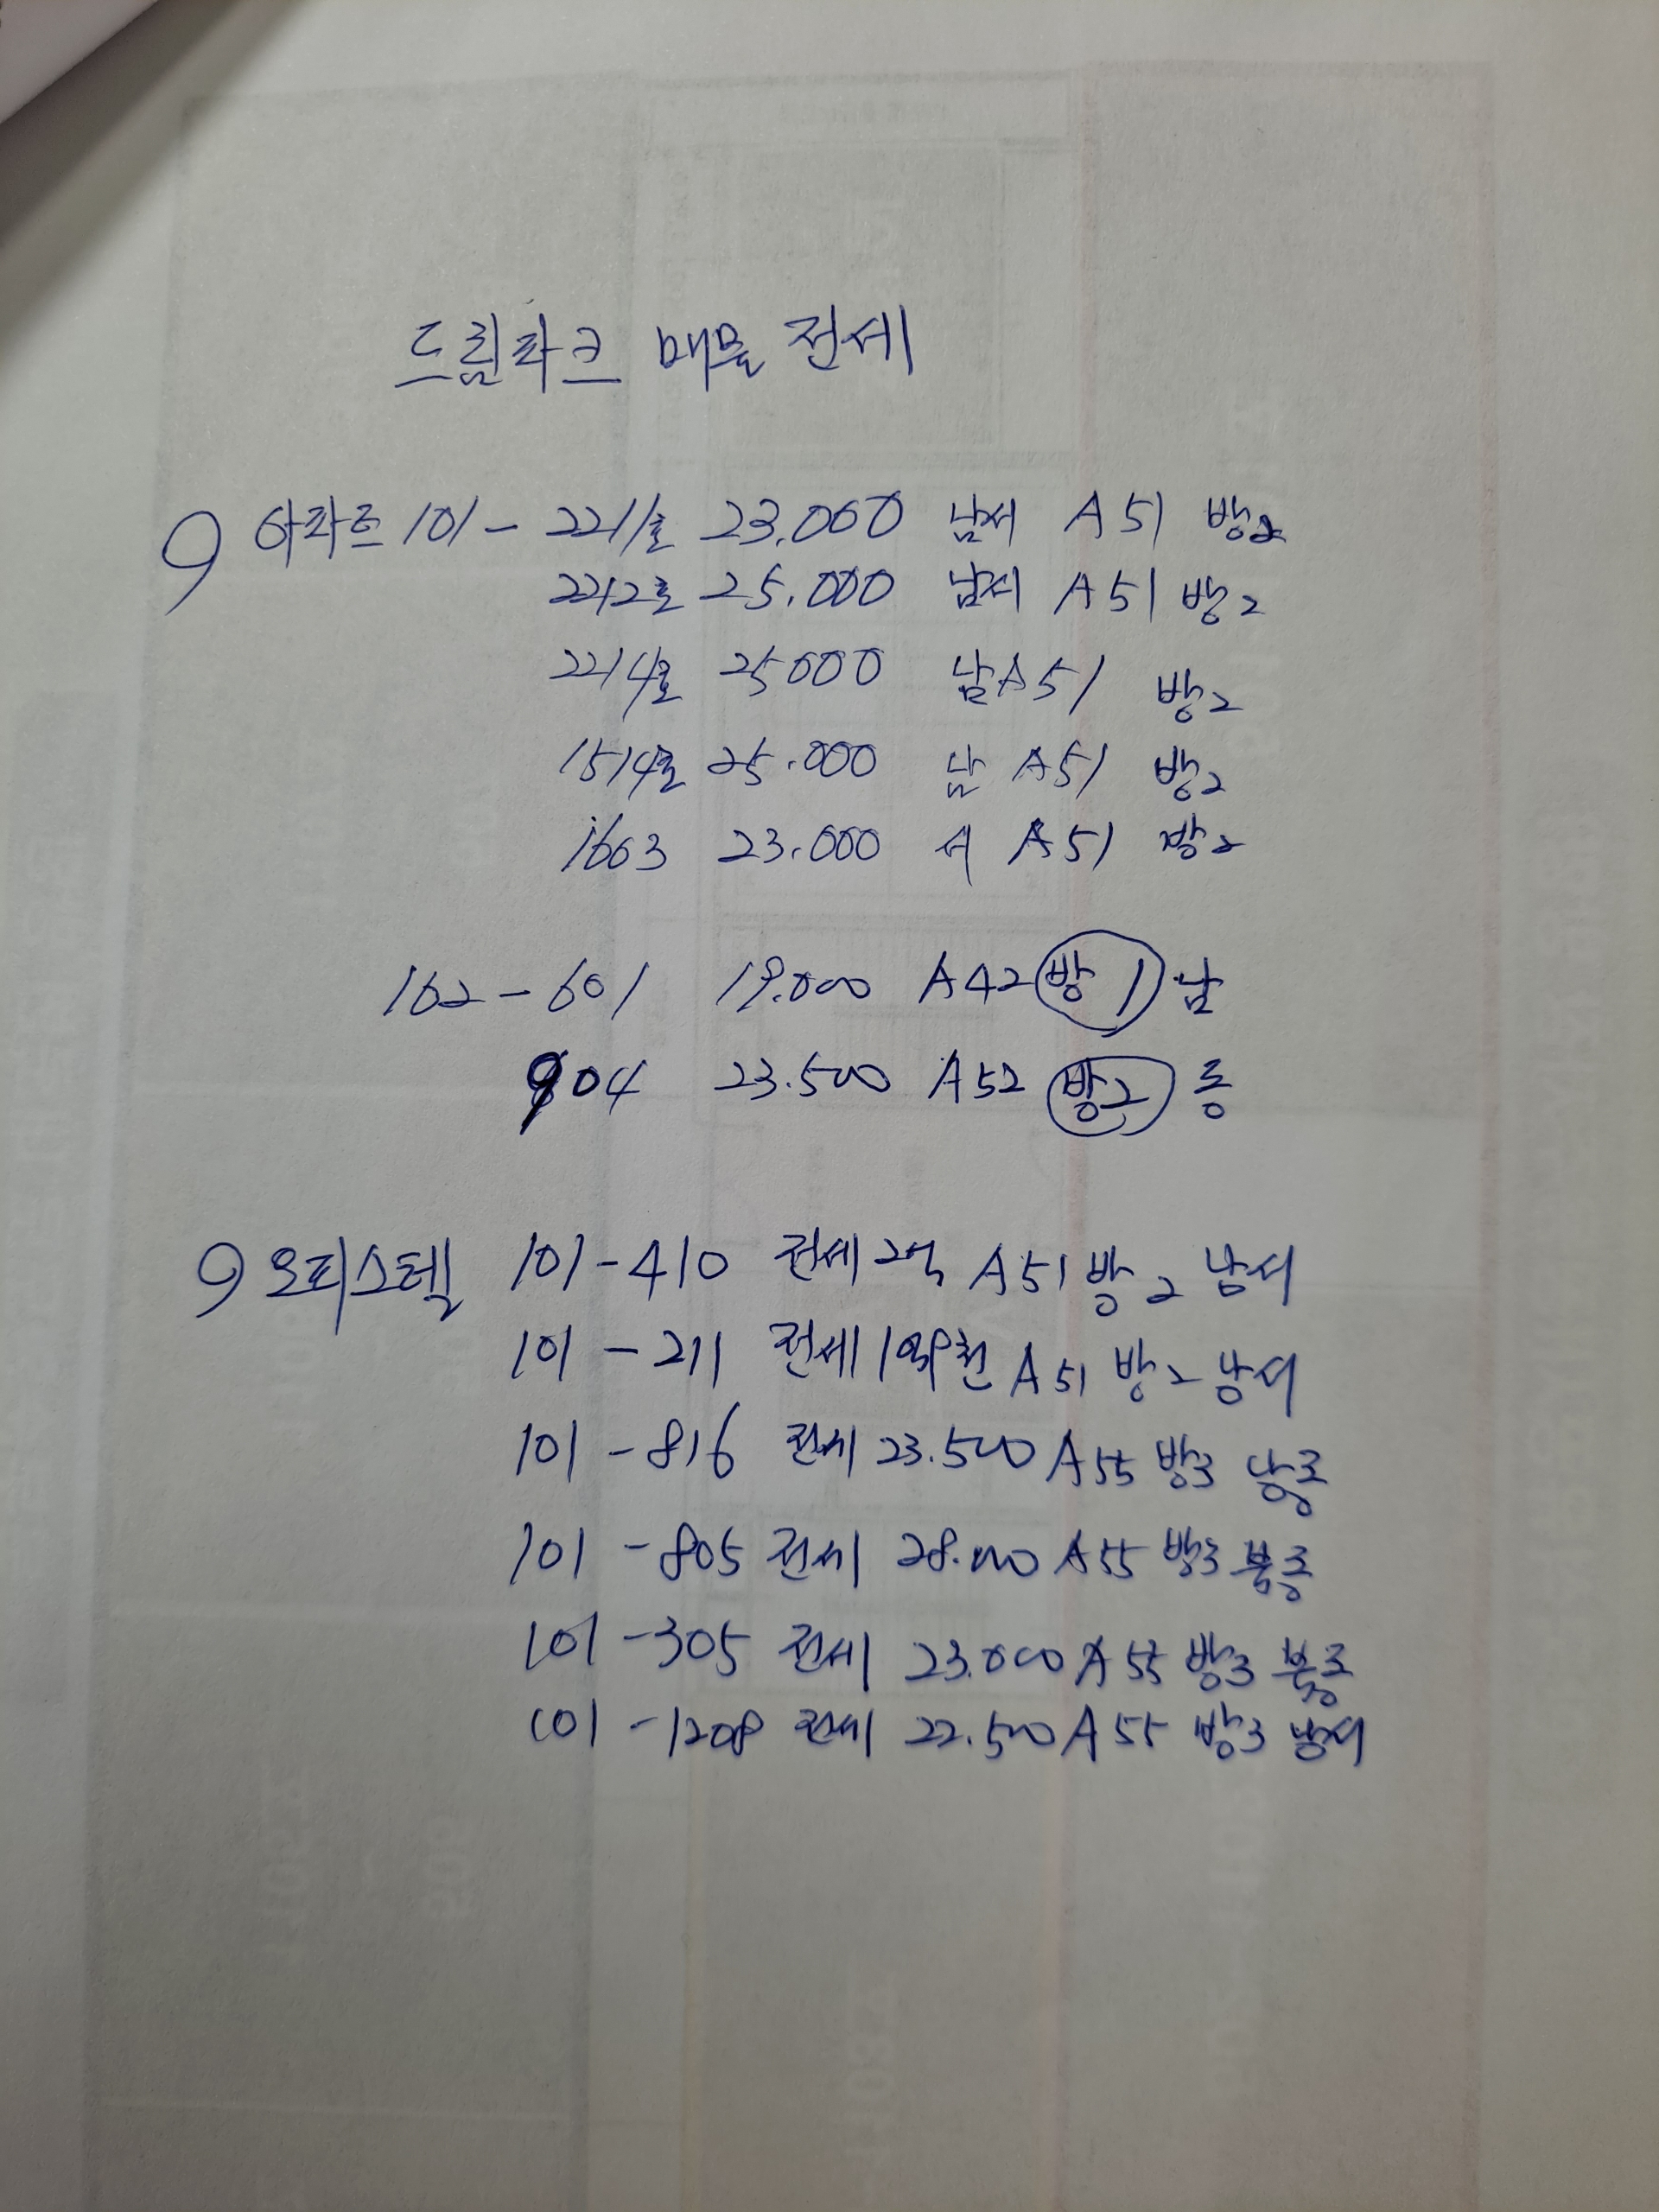 드림파크 매물 전세
9 아파트 101 - 2211호 23.000 남서 A 51 방2
2212호 25.000 남서 A 51 방2
2214호 25000 남 A 51 방2
1514호 25.000 남 A 51 방2
1603 23.000 서 A 51 방2
102 - 601 19.000 A 42 방1 남
904 23.500 A 52 방2 동
9 오피스텔 101 - 410 전세 2억 A 51 방2 남서
101 - 211 전세 1억9천 A 51 방2 남서
101 - 816 전세 23.500 A 55 방3 남동
101 - 805 전세 28.000 A 55 방3 북동
101 - 305 전세 23.000 A 55 방3 북동
101 - 1208 전세 22.500 A 55 방3 남서